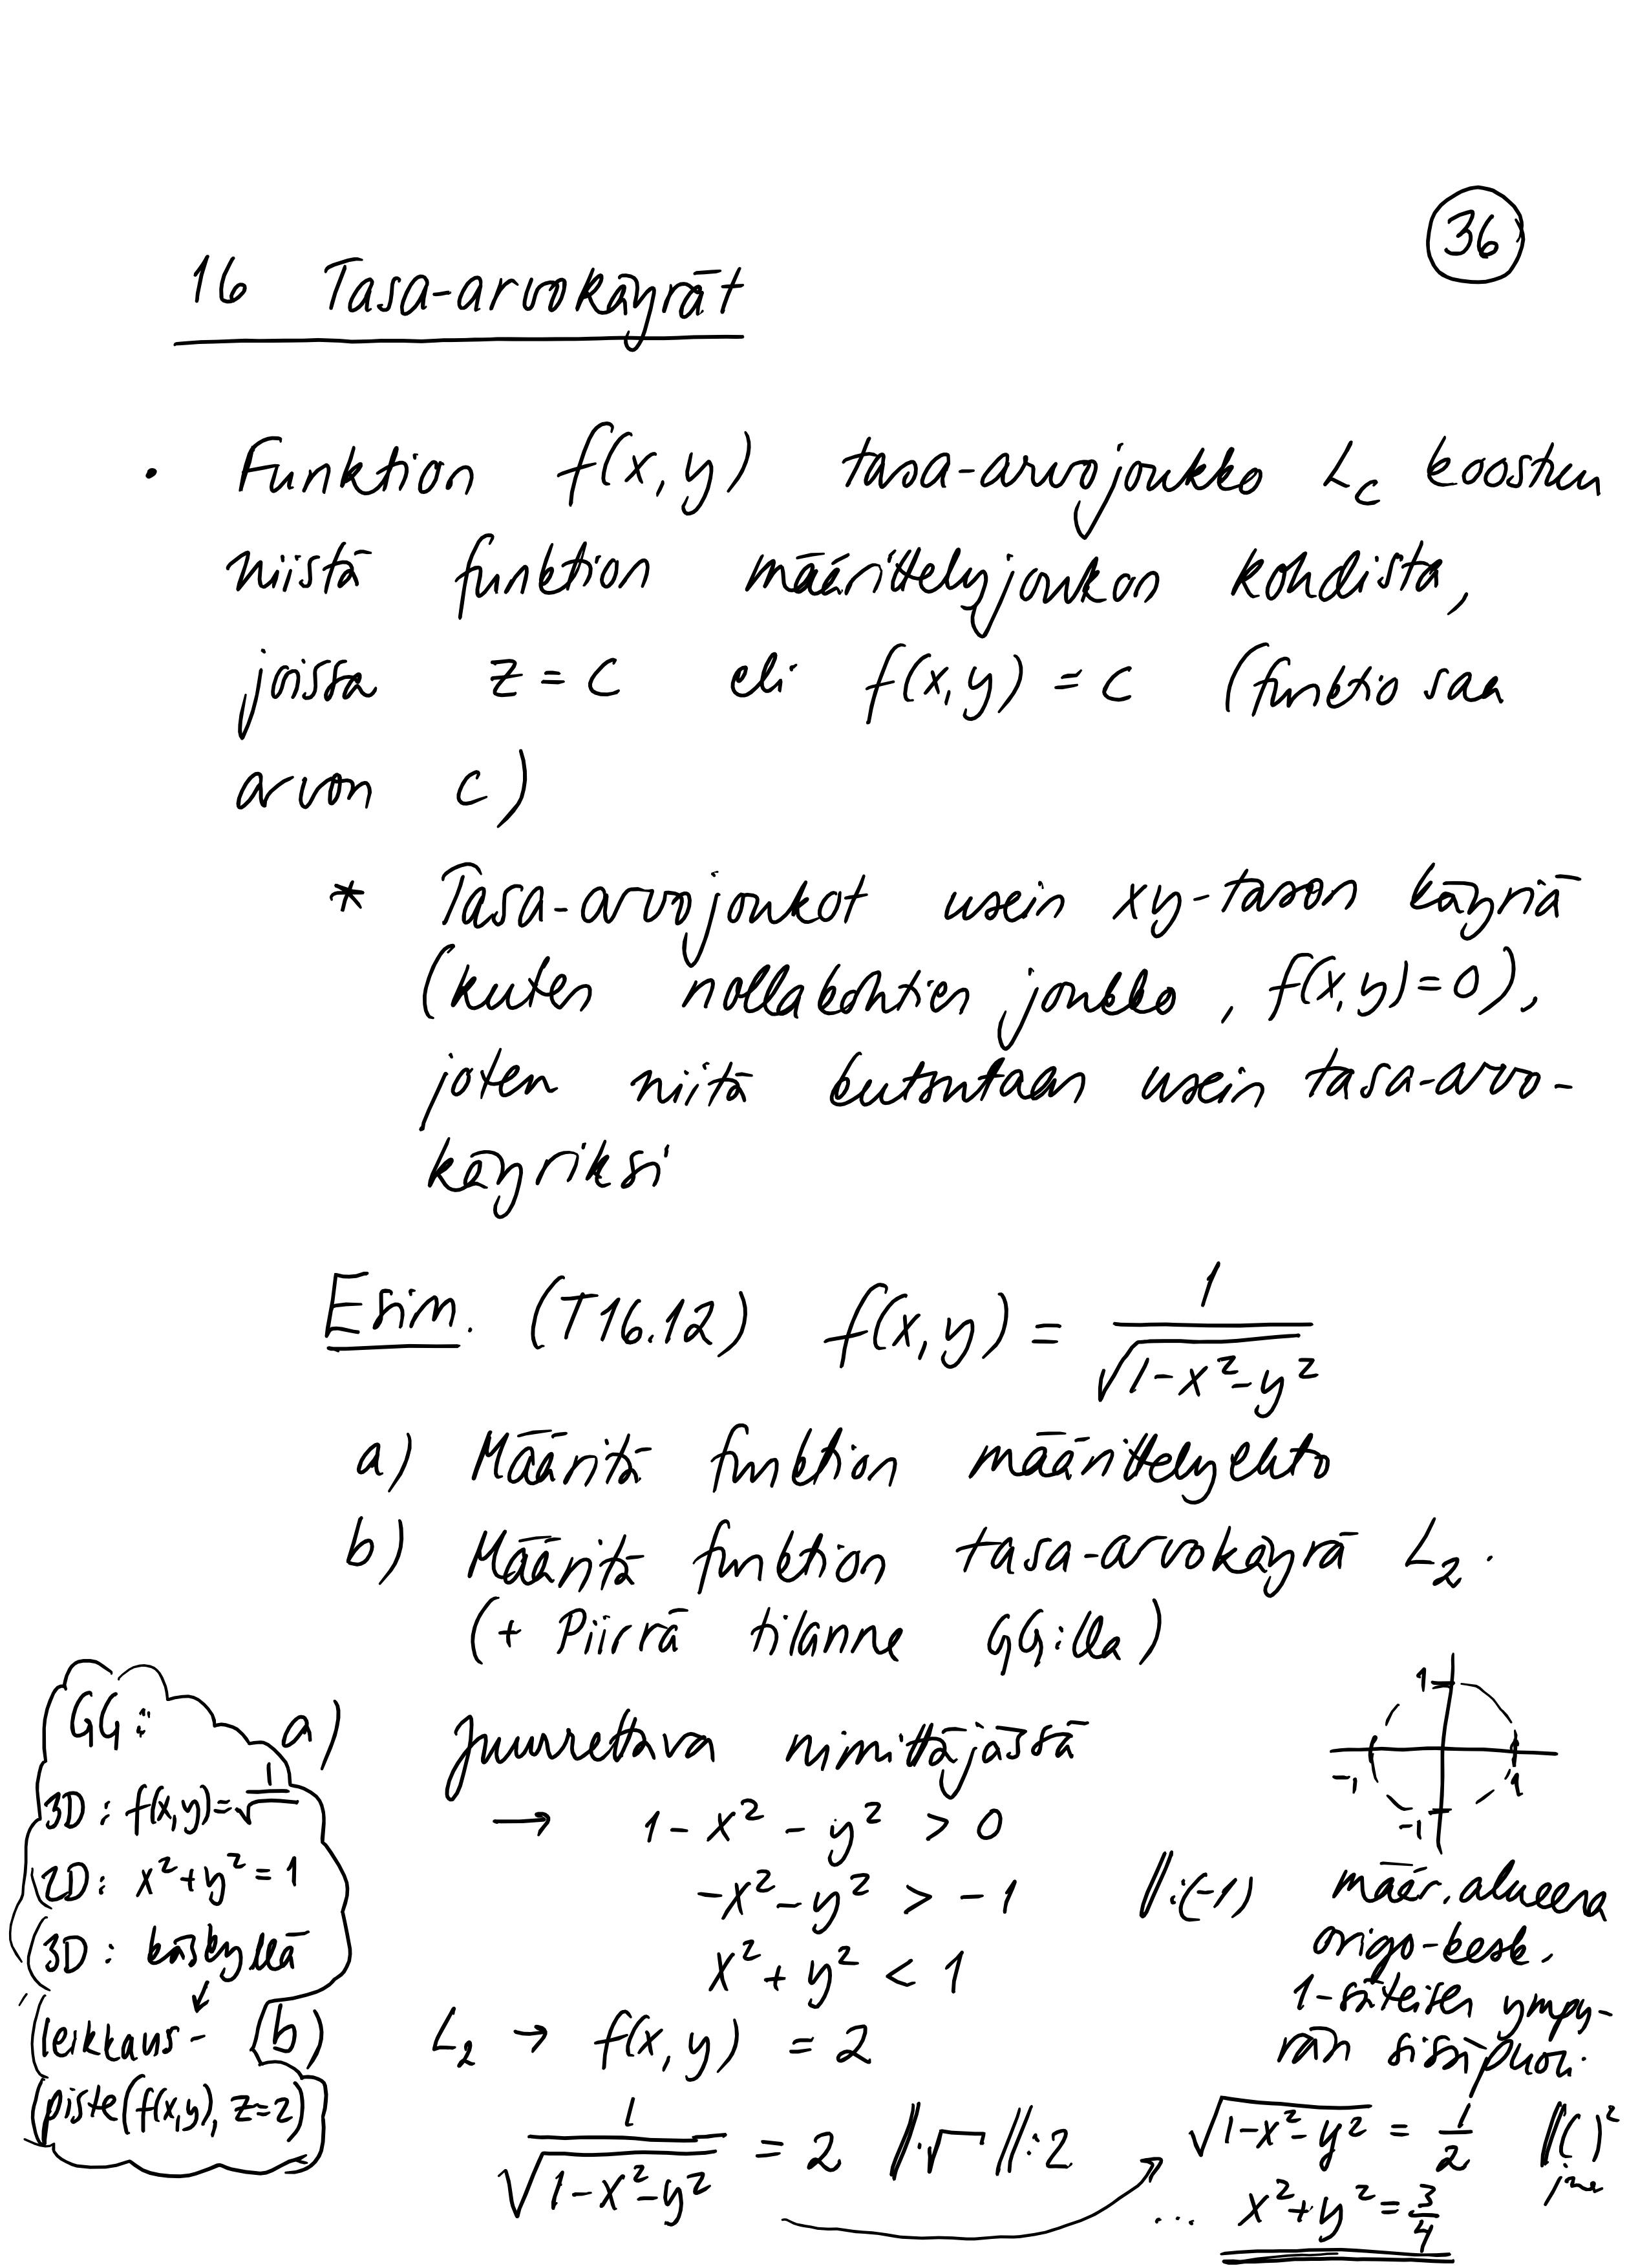 36
16 Tasa-arvokäyrät
• Funktion f(x,y) tasa-arvojoukko L_c koostuu
niistä funktion määrittelyjoukon kohdista,
joissa z = c eli f(x,y) = c (funktio saa
arvon c)
* Tasa-arvojoukot usein xy-tason käyriä
(kuten nollakohtien joukko, f(x,y)=0),
joten niitä kutsutaan usein tasa-arvo-
käyriksi
Esim. (T16.12) f(x,y) = 1/√(1-x²-y²)
a) Määritä funktion määrittelyehto
b) Määritä funktion tasa-arvokäyrä L₂.
(+ Piirrä tilanne GG:lla)
a) Juurettava nimittäjässä
→ 1-x²-y² > 0
-x²-y² > -1 ‖:(-1)
x²+y² < 1
1
-1 1
-1
määr. alueena
origo-kesk.
1-säteisen ympy-
rän sisäpuoli.
GG:
3D: f(x,y)=1/√
2D: x²+y²=1
3D: käskyllä
↓
leikkaus-
piste(f(x,y), z=2)
b) L₂ → f(x,y) = 2
1/√(1-x²-y²) = 2 ‖·√ ‖:2
√(1-x²-y²) = 1/2 ‖( )²
jne
... x²+y² = 3/4